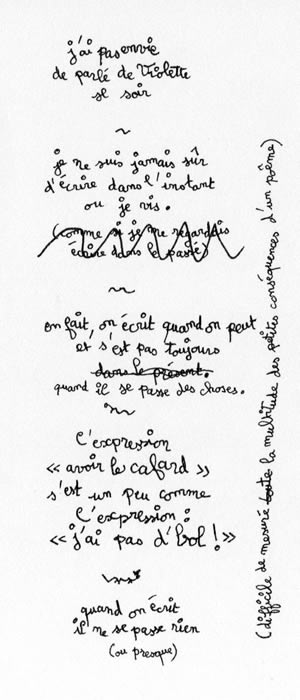 j'ai pas envie
de parlé de Violette
se soir
je ne suis jamais sûr
d'écrire dans l'instant
ou je vis.
(comme si je me regardais
écrire dans le passé)
en fait, on écrit quand on peut
et s'est pas toujours
dans le present.
quand il se passe des choses.
L'expression
« avoir le cafard »
s'est un peu comme
l'expression :
« j'ai pas d'bol ! »
quand on écrit
il ne se passe rien
(ou presque)
(difficile de mesuré toute la multitude des petites conséquences d'un poême)